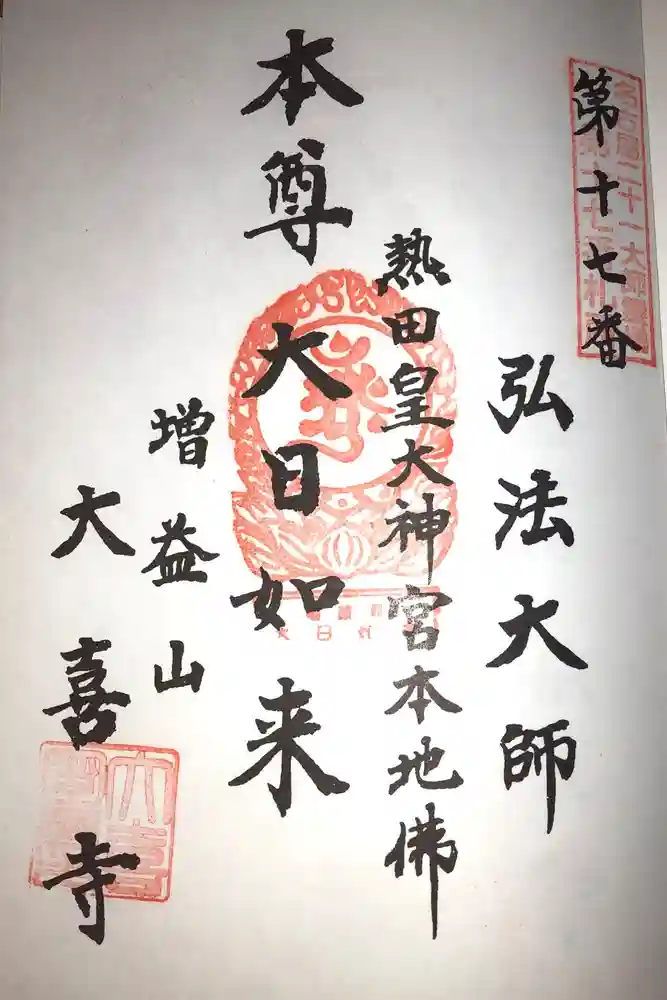 第十七番
名古屋二十一大師霊場
第十七番札所
弘法大師
熱田皇大神宮本地佛
本尊 大日如来
増益山
大喜寺